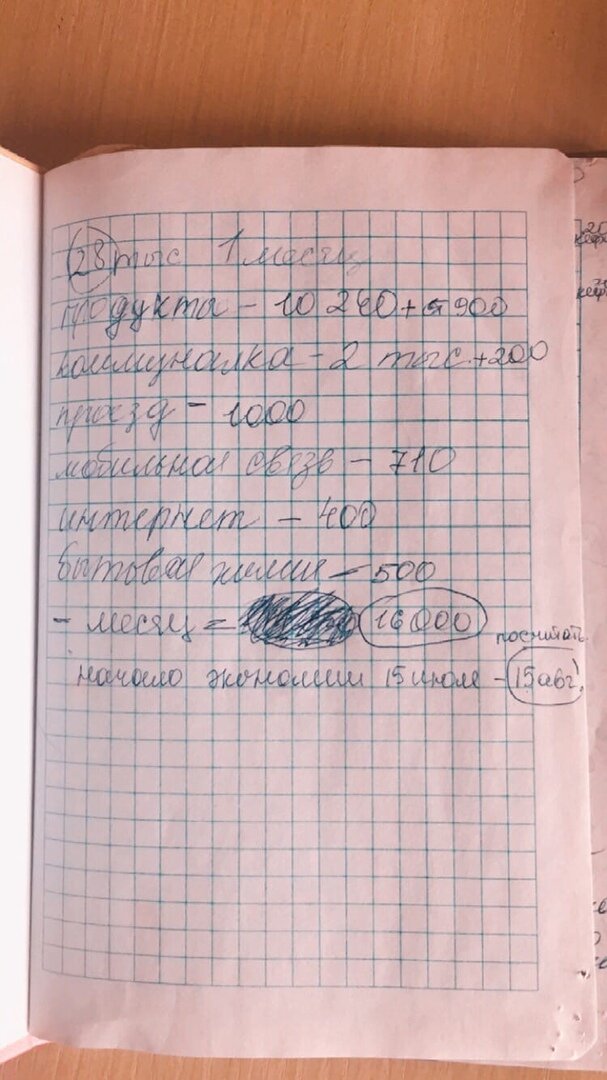 28 тыс 1 месяц
продукты - 10 240 + 5900
коммуналка - 2 тыс. +200
проезд - 1000
мобильная связь - 710
интернет - 400
бытовая химия - 500
- месяц = 16000
посчитать
начало экономии 15 июля - 15 авг!